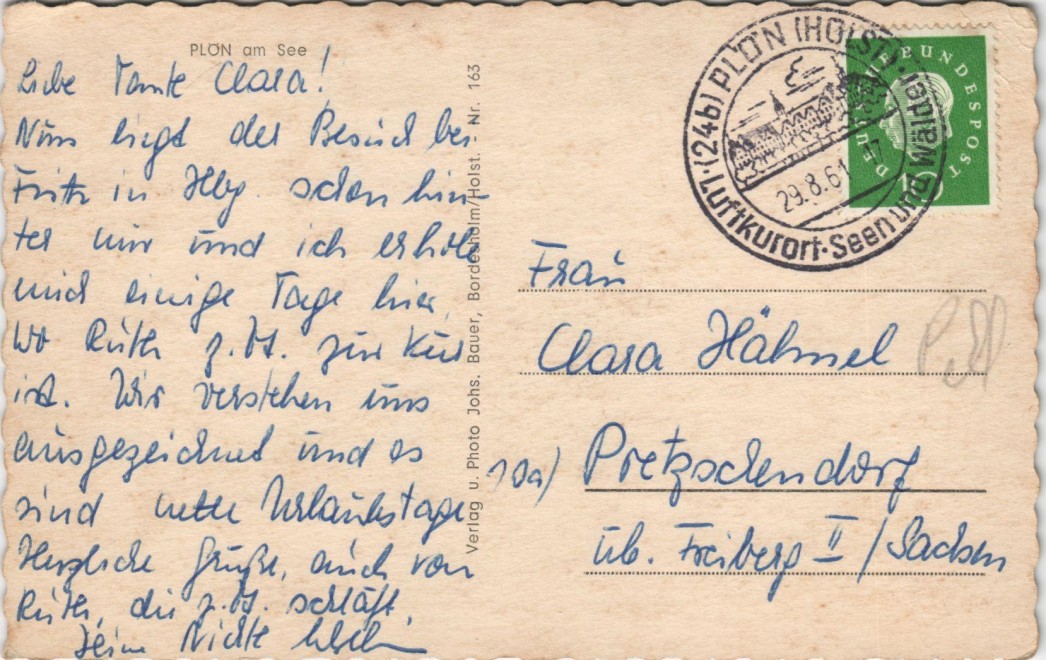 PLÖN am See
Liebe Tante Clara!
Nun liegt der Besuch bei
Fritz in Hbg. schon hin-
ter mir und ich erhole
mich einige Tage hier,
wo Ruth z. Zt. zur Kur
ist. Wir verstehen uns
ausgezeichnet und es
sind nette Urlaubstage
Herzliche Grüße, auch von
Ruth, die z. Zt. schläft,
Deine Nichte
Verlag u. Photo Johs. Bauer, Bordesholm/Holst. - Nr. 163
(24b) PLÖN (HOLST)
29.8.61-17
Luftkurort · Seen und Wälder
DEUTSCHE BUNDESPOST
10
Frau
Clara Hähnel
10a) Pretzschendorf
üb. Freiberg II / Sachsen